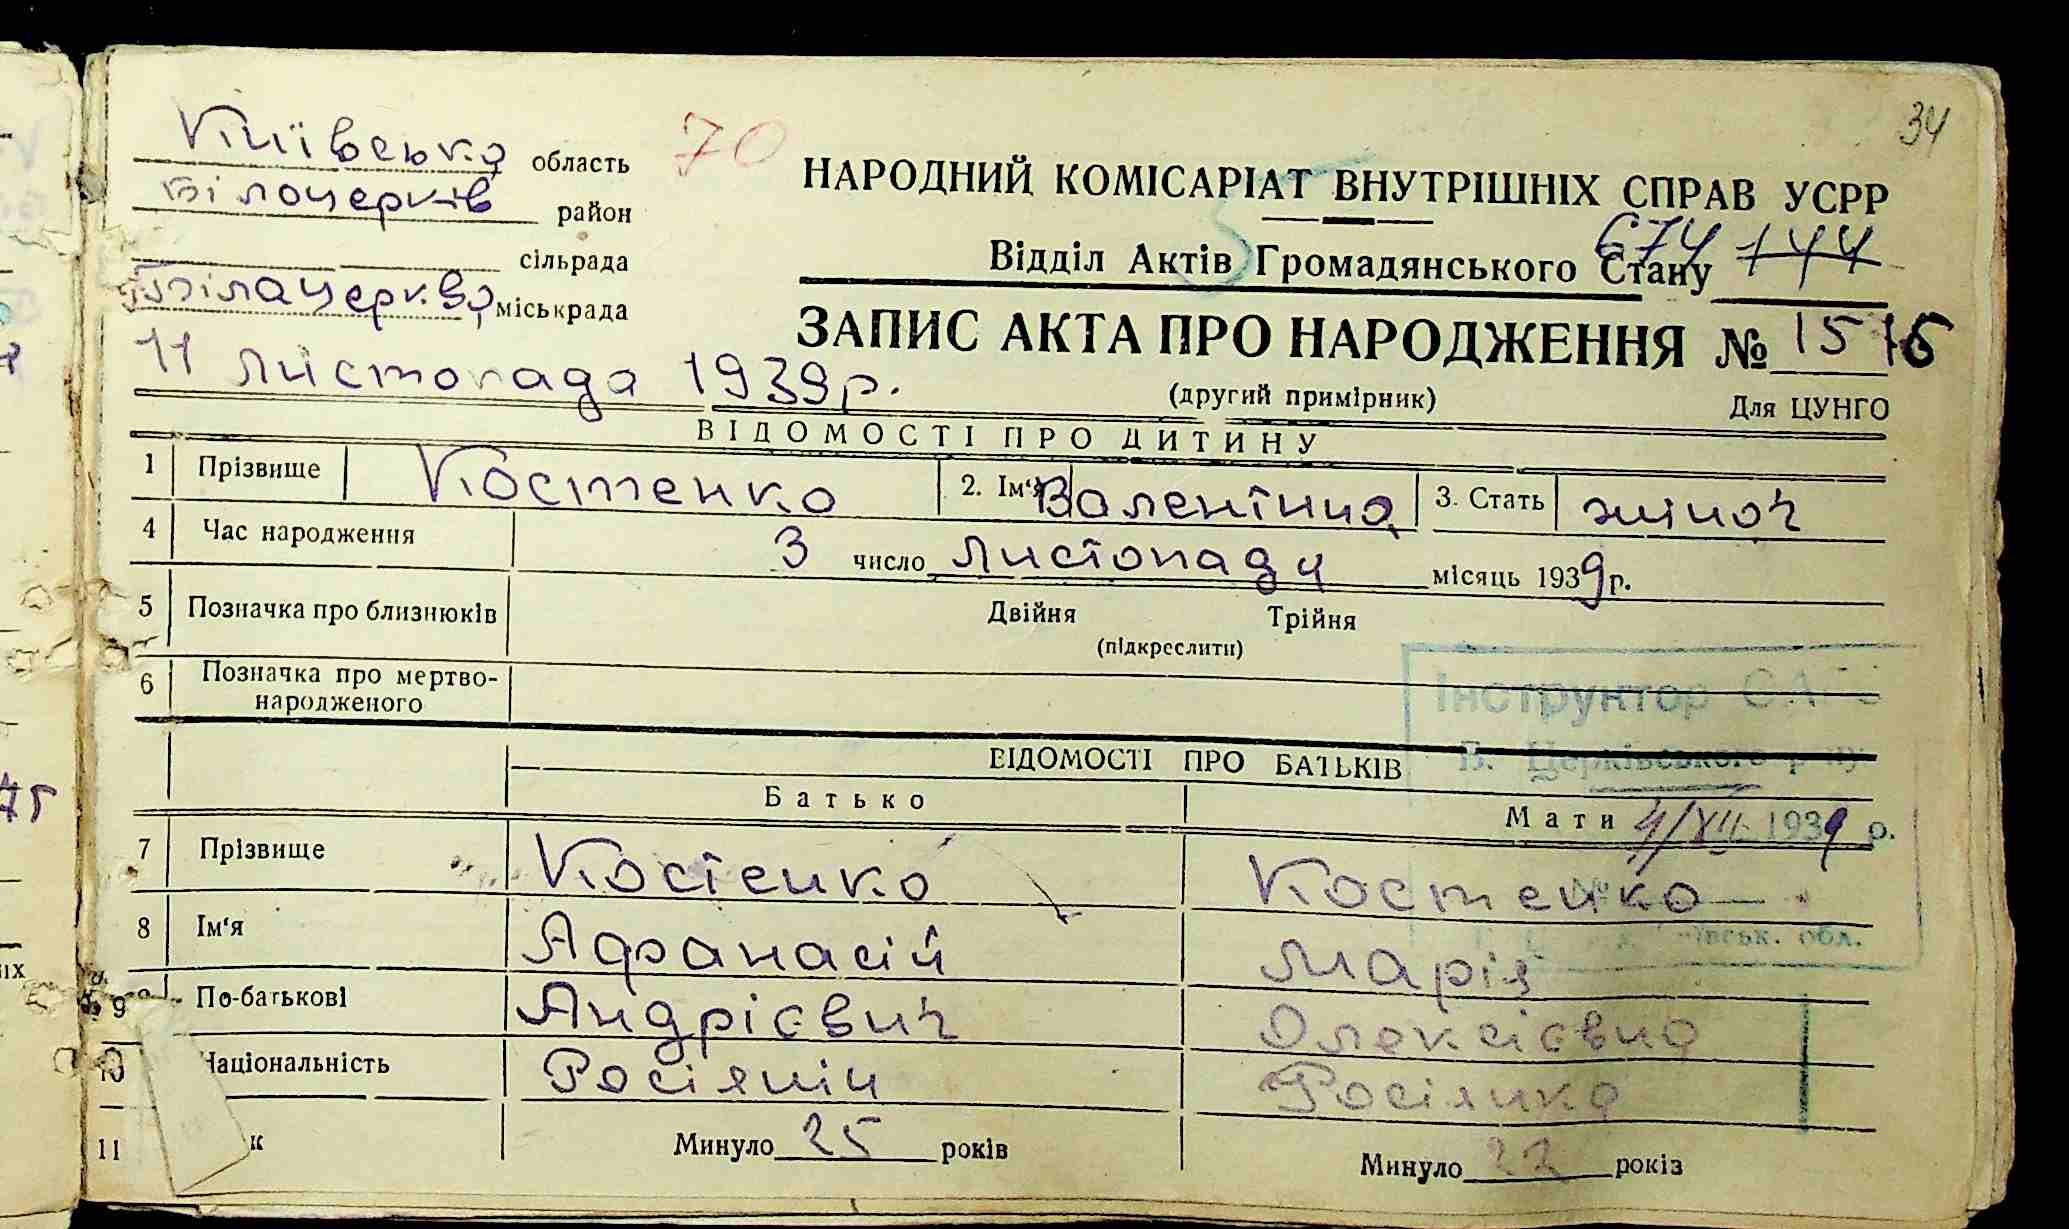 34
Київська область
70
Білоцерків район
сільрада
Білацерква міськрада
11 листопада 1939 р.
НАРОДНИЙ КОМІСАРІАТ ВНУТРІШНІХ СПРАВ УСРР
Відділ Актів Громадянського Стану 674 144
ЗАПИС АКТА ПРО НАРОДЖЕННЯ №
(другий примірник) Для ЦУНГО
ВІДОМОСТІ ПРО ДИТИНУ
1 Прізвище Костенко 2. Ім'я Валентина 3. Стать жіноч
4 Час народження 3 число листопада місяць 1939 р.
5 Позначка про близнюків Двійня Трійня
(підкреслити)
6 Позначка про мертво-
народженого
Інструктор
Б. Церківського р-ну
ВІДОМОСТІ ПРО БАТЬКІВ
Батько Мати
4/XII 1939 р.
7 Прізвище Костенко Костенко
8 Ім'я Афанасій Марія
обл.
9 По-батькові Андрієвич Олексієвна
10 Національність Росіянін Росіянка
11 к Минуло 25 років Минуло 22 років